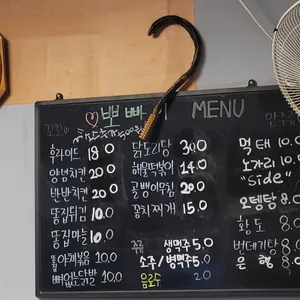 ♡뽀빠이 MENU
후라이드 18.0
양념치킨 20.0
반반치킨 20.0
똥집튀김 10.0
똥집마늘 10.0
똥집야채볶음 20.0
뼈없는닭발 10.0
닭도리탕 30.0
해물떡볶이 14.0
골뱅이무침 20.0
꽁치찌개 15.0
생맥주 5.0
소주/병맥주 5.0
음료수 2.0
먹태 10.0
노가리 10.0
"side"
오뎅탕 8.0
황도 8.0
번데기탕 8.0
은행 8.0